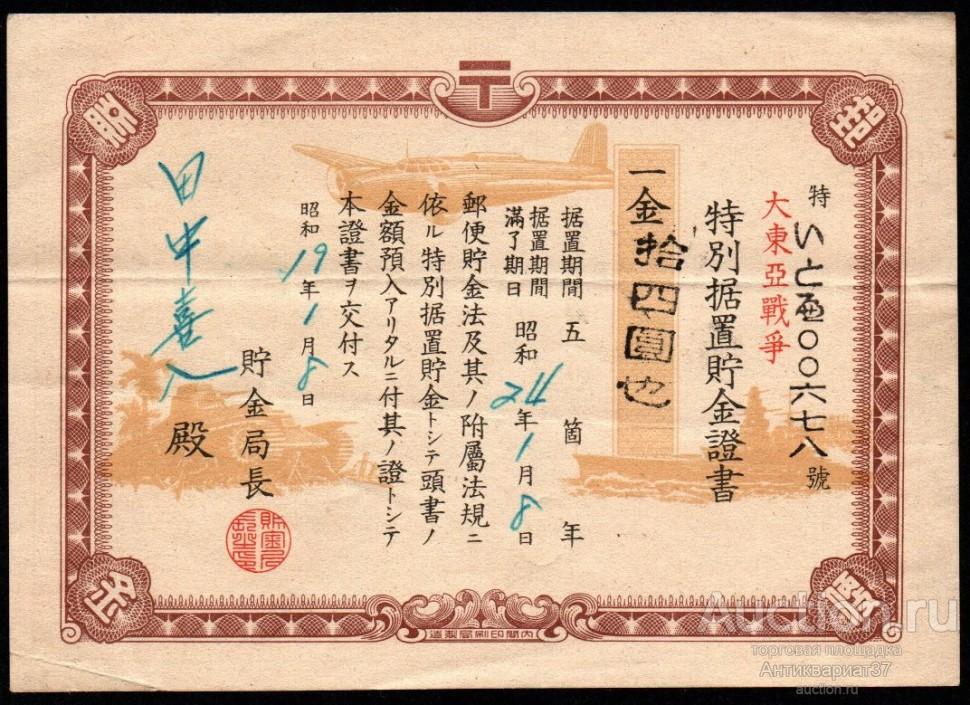 特いと〇〇六七八號
大東亞戰爭
特別据置貯金證書
一金拾四圓也
据置期間 五箇年
据置期間滿了期日 昭和24年1月8日
郵便貯金法及其ノ附屬法規ニ
依ル特別据置貯金トシテ頭書ノ
金額預入アリタルニ付其ノ證トシテ
本證書ヲ交付ス
昭和19年1月8日
貯金局長
田中喜八殿
内閣印刷局製造
Auction.ru
торговая площадка
Антиквариат37
auction.ru